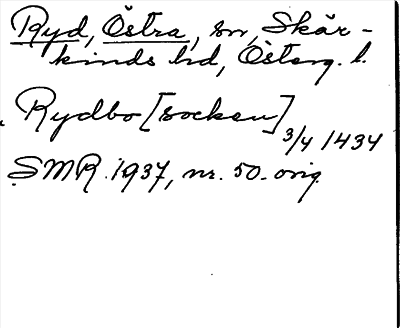 Ryd, Östra, sn, Skär-
kinds hd, Österg. l.
Rydbo [socken]
3/4 1434
SMR. 1937, nr. 50. orig.